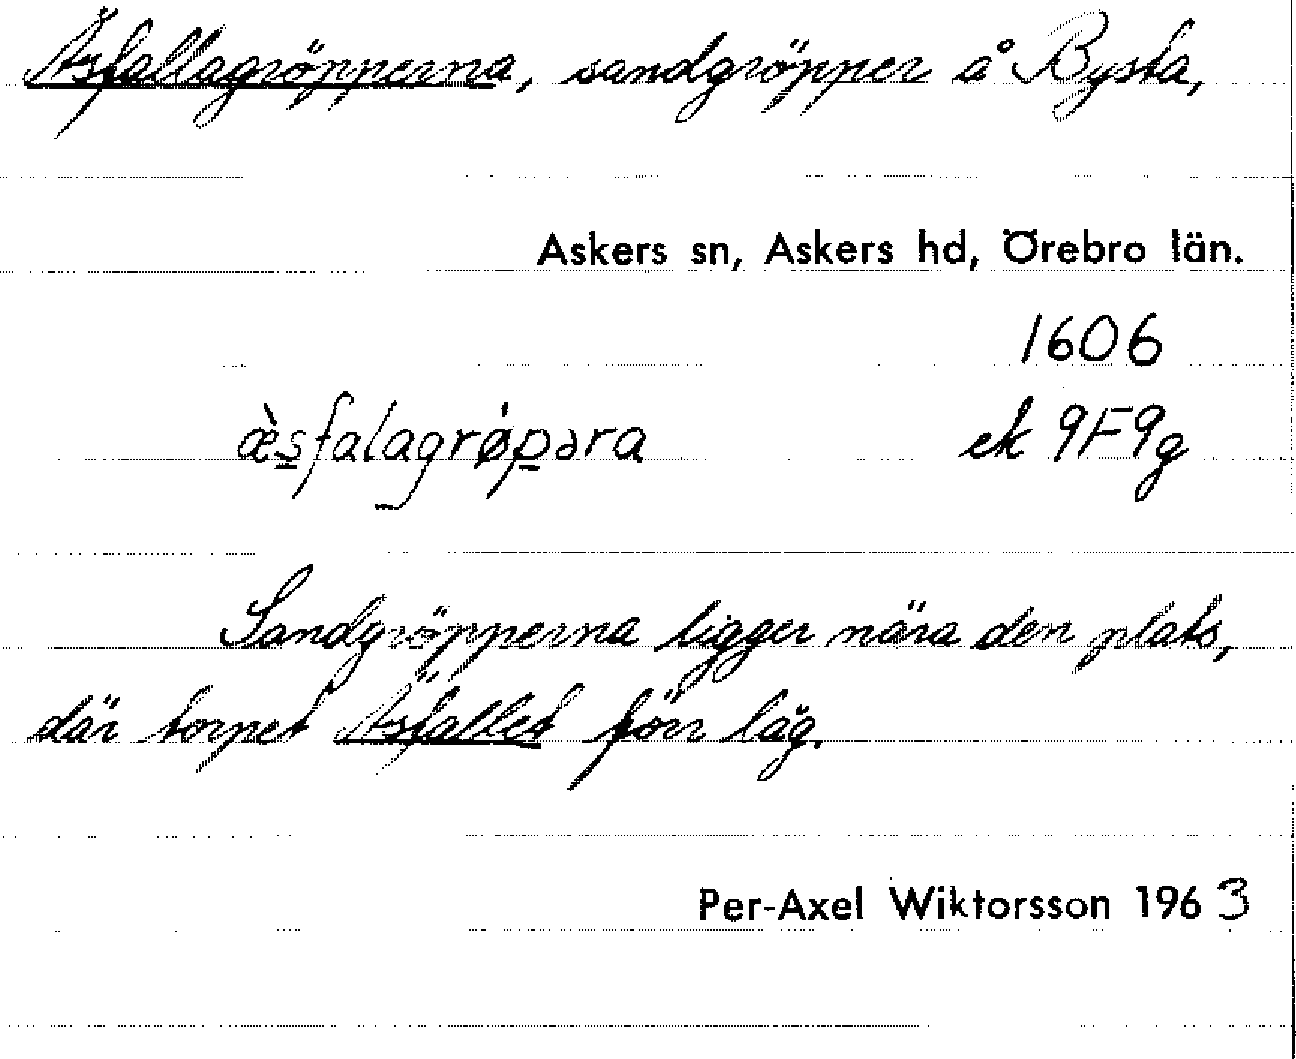 Äsfallagröpperna, sandgröpper å Bysta,
Askers sn, Askers hd, Örebro län.
1606
æ̀s̲falagrǿp̲əra ek 9F9g
Sandgröpperna ligger nära den plats,
där torpet Äsfallet förr låg.
Per-Axel Wiktorsson 1963